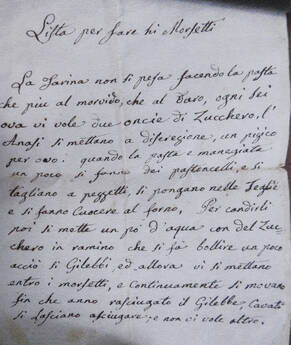 Lista per fare hi Morsetti
La farina non si pesa facendo la pasta
che piu al morvido, che al Duro, ogni sei
ova vi vole due oncie di Zucchero, l'
Anasi si mettano a discrezione, un pizico
per ovo: quando la pasta e manegiata
un poco si fanno dei pastoncelli, e si
tagliano a pezzetti, si pongano nelle Teglie
e si fanno Cuocere al forno, Per candirli
poi si mette un pó d'aqua con del Zuc-
chero in ramino che si fà bollire un poco
acciò si Gilebbi, ed allora vi si mettano
entro i morsetti, e Continuamente si movano
fin che anno rasciugato il Gilebbe, Cavati
si lasciano asciugare, e non ci vole altro.